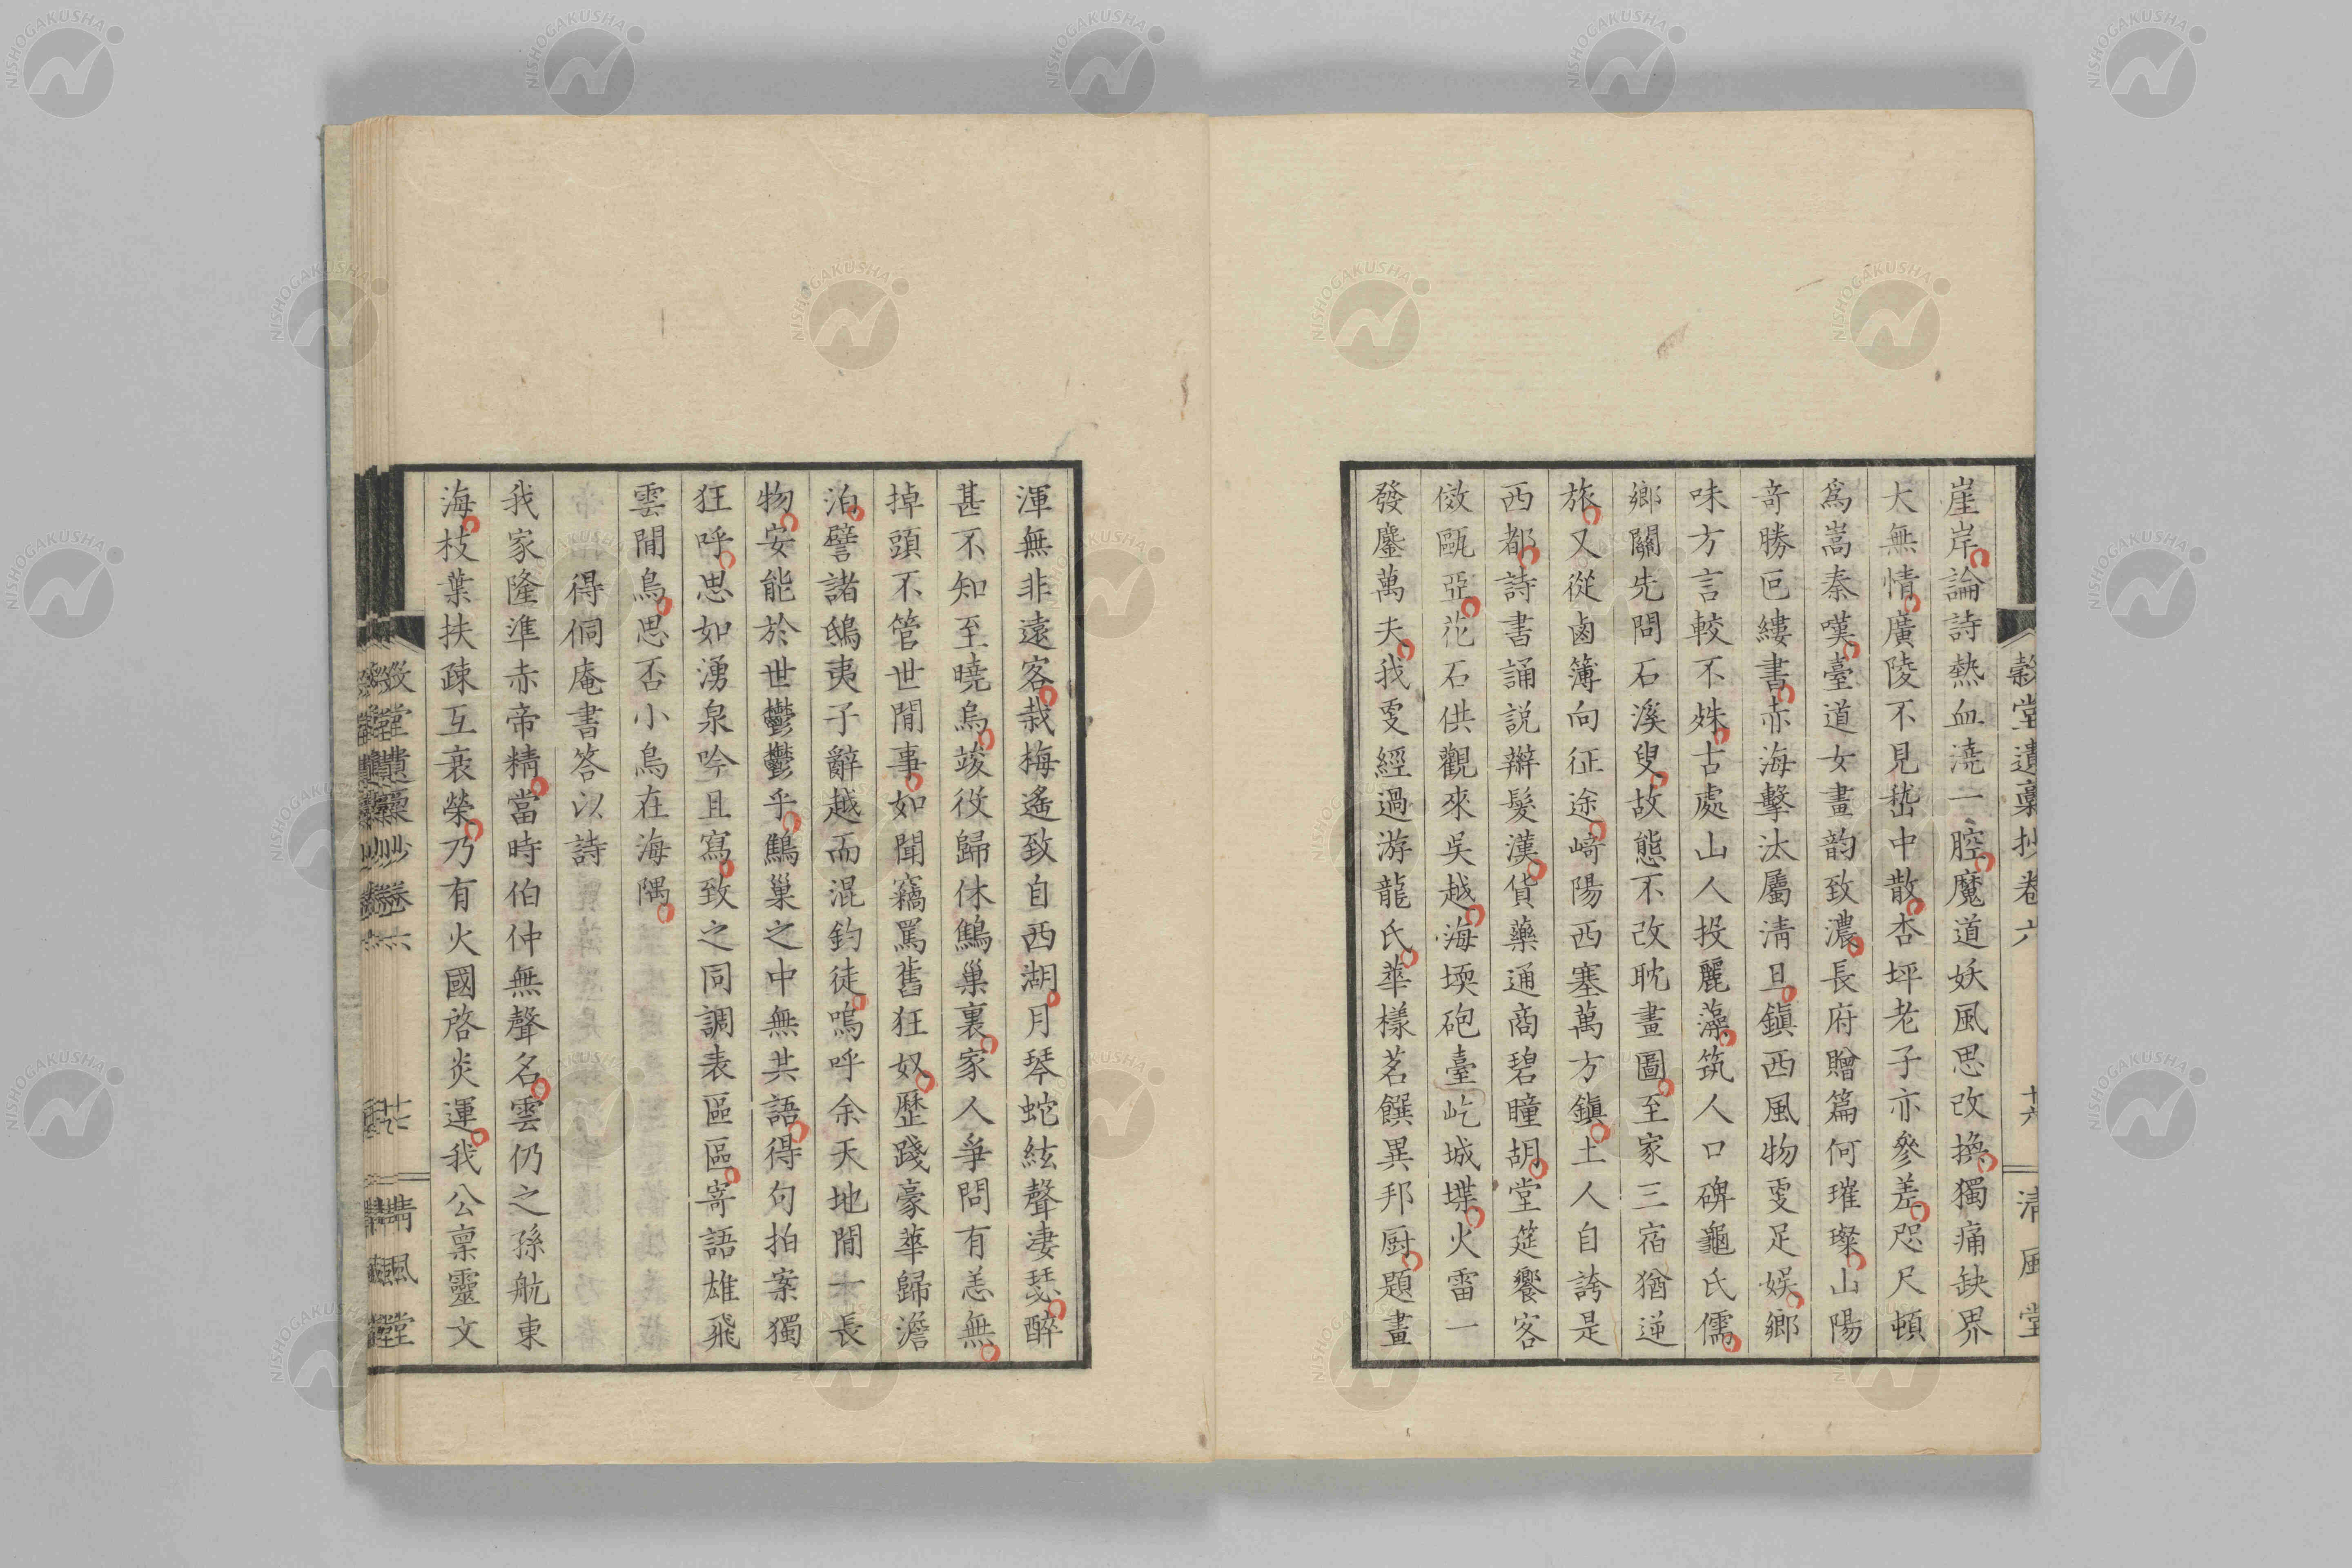 穀堂遺稾抄卷六 十六 清風堂
崖岸論詩熱血澆一腔魔道妖風思改換獨痛缺界
大無情廣陵不見嵆中散杏坪老子亦參差咫尺頓
爲嵩秦嘆臺道女畫韵致濃長府贈篇何璀璨山陽
奇勝巨縷書赤海擊汰屬清且鎭西風物更足娱鄉
味方言較不姝古處山人投麗藻筑人口碑龜氏儒
鄉關先問石溪叟故態不改耽畫圖至家三宿猶逆
旅又從鹵簿向征途﨑陽西塞萬方鎭土人自誇是
西都詩書誦説辮髮漢貨藥通商碧瞳胡堂筵饗客
倣甌亞花石供觀來吳越海堧砲臺屹城堞火雷一
發鏖萬夫我更經過游龍氏華樣茗饌異邦厨題畫
渾無非遠客栽梅遙致自西湖月琴蛇絃聲凄瑟醉
甚不知至曉烏竣役歸休鷦巢裏家人爭問有恙無
掉頭不管世間事如聞竊罵舊狂奴歷踐豪華歸澹
泊譬諸鴟夷子辭越而混釣徒嗚呼余天地間一長
物安能於世鬱鬱乎鷦巢之中無共語得句拍案獨
狂呼思如湧泉吟且寫致之同調表區區寄語雄飛
雲間鳥思否小鳥在海隅
得侗庵書答以詩
我家隆準赤帝精當時伯仲無聲名雲仍之孫航東
海枝葉扶疎互衰榮乃有火國啓炎運我公稟靈文